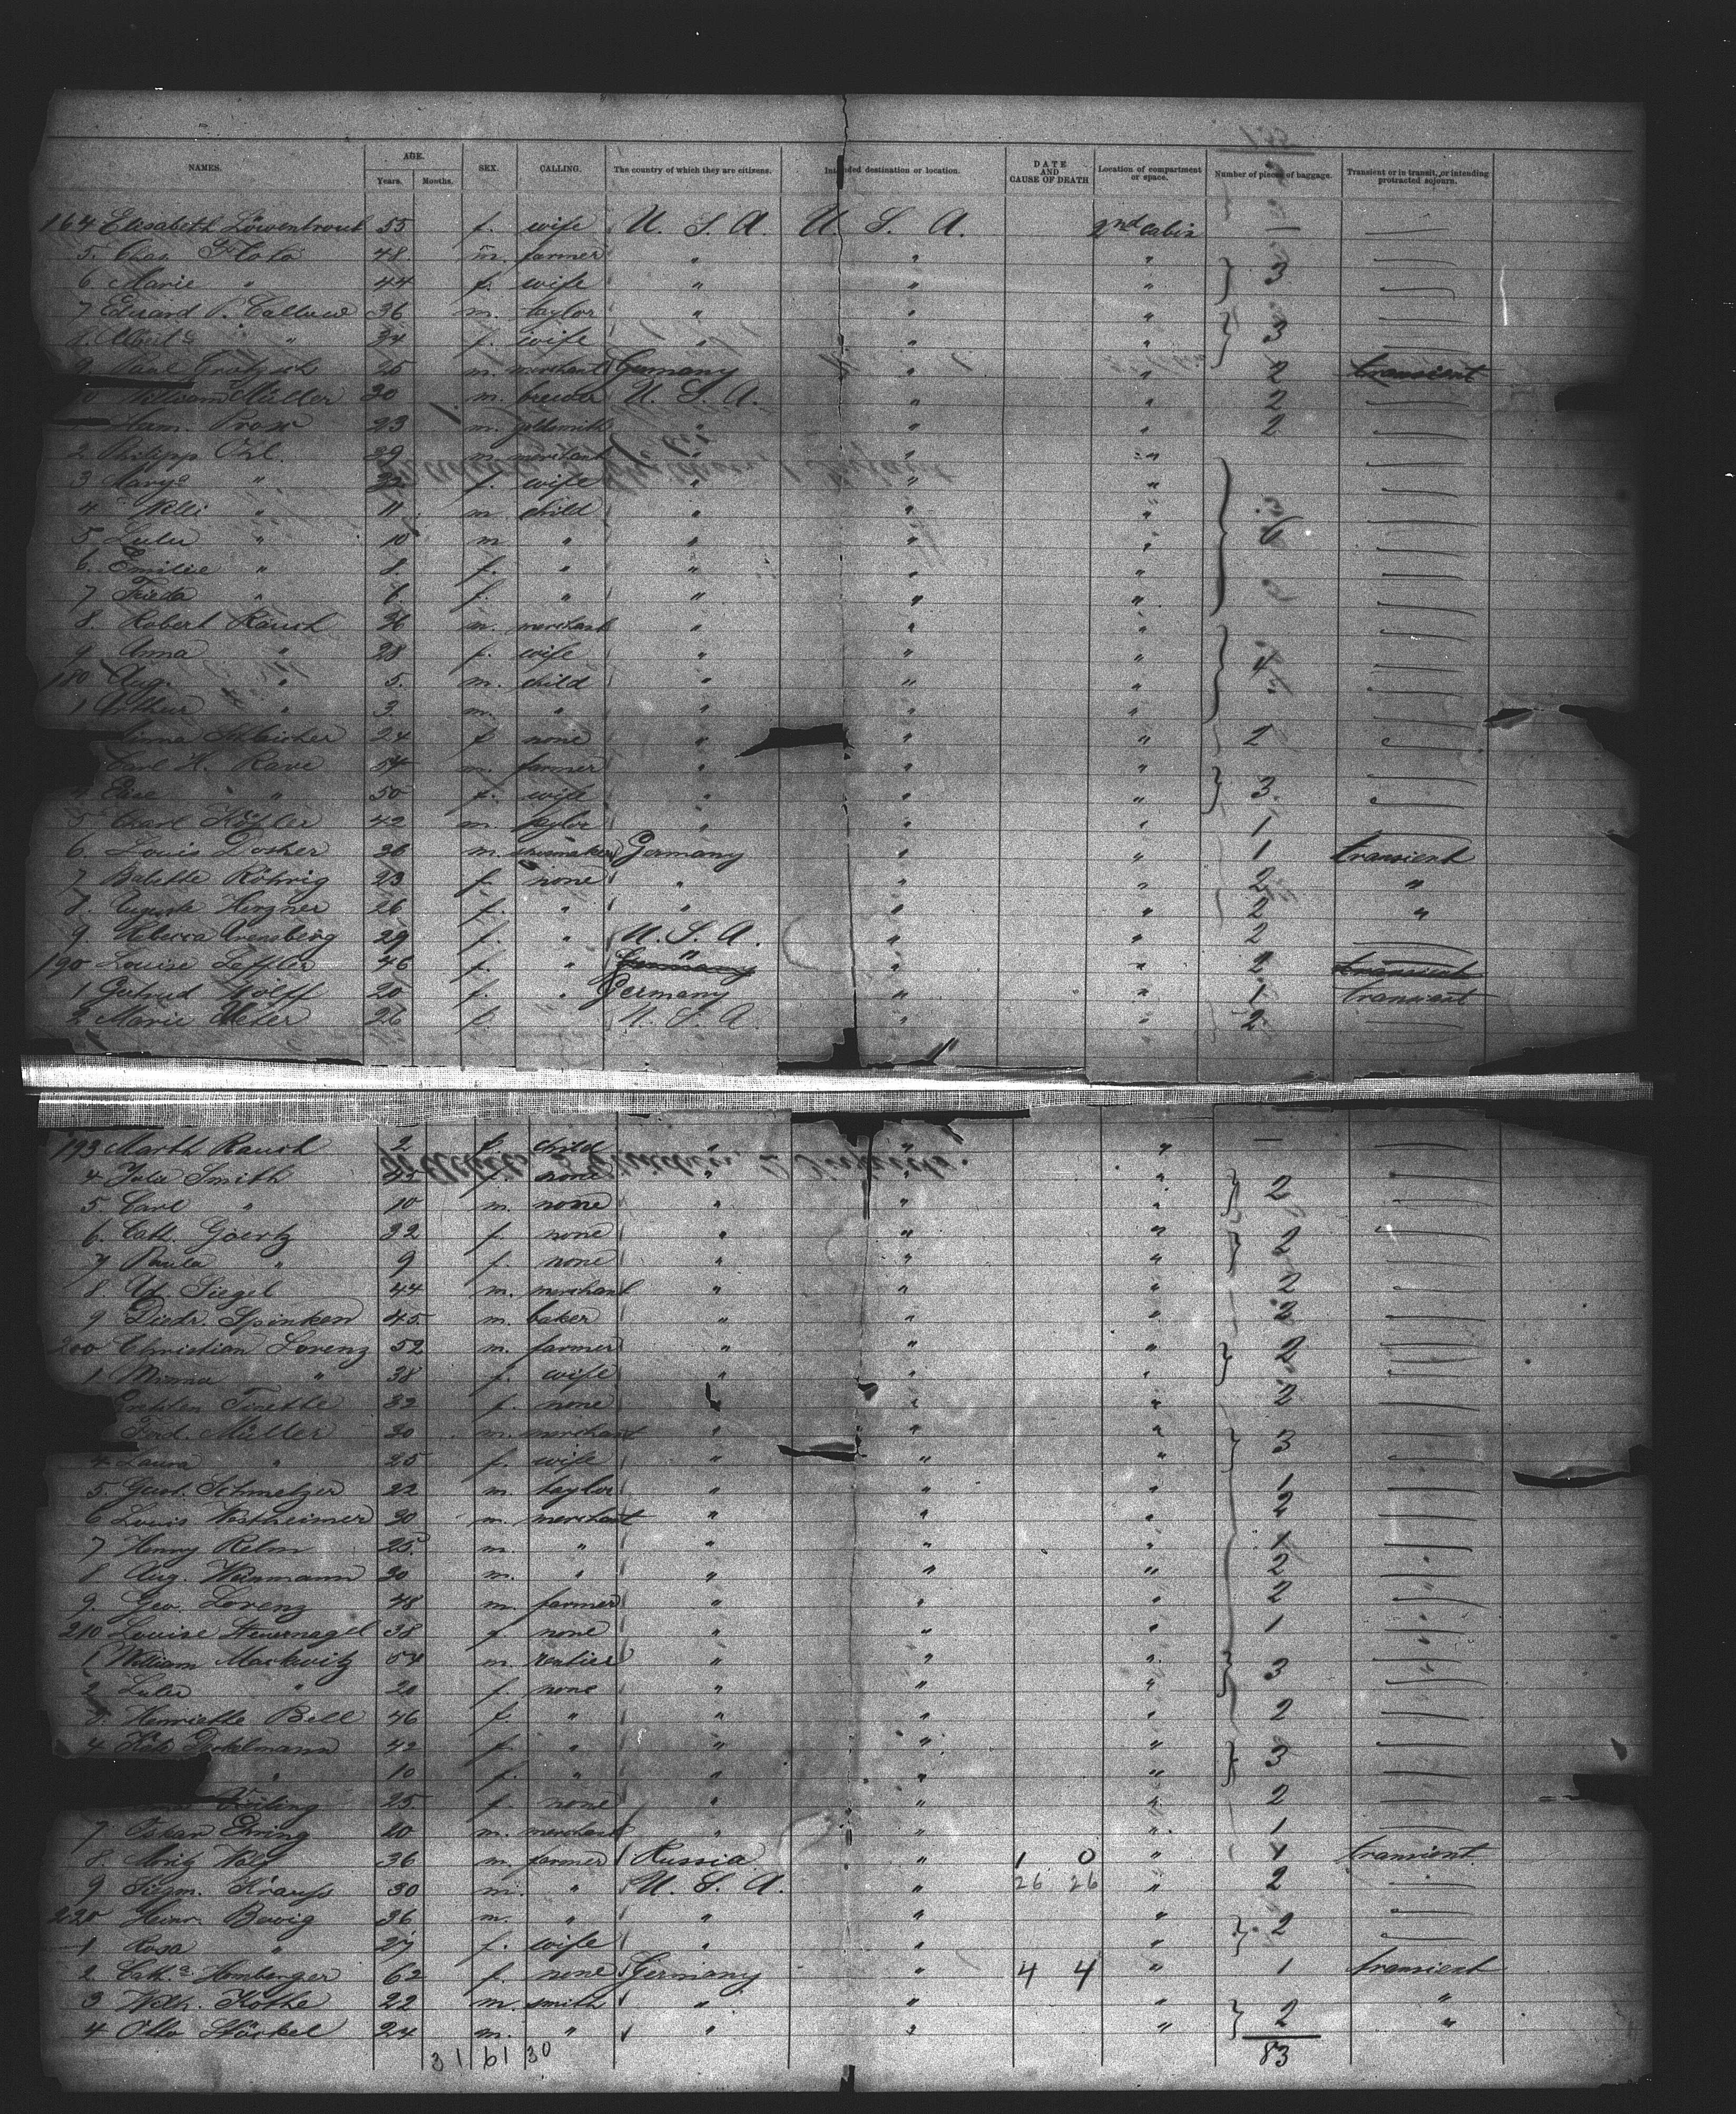 NAMES. AGE. Years. Months. SEX. CALLING. The country of which they are citizens. Intended destination or location. DATE AND CAUSE OF DEATH Location of compartment or space. Number of pieces of baggage. Transient or in transit, or intending protracted sojourn.
164 Elisabeth Löwentrout 55 f. wife U. S. A. U. S. A. 2nd Cabin —
5. Chas. Floto 48 m. farmer " " "
6 Marie " 44 f. wife " " " 3
7 Eduard P. Calluw 36 m. taylor " " "
" 34 f. wife " " " 3
9. Paul 25 m. merchant Germany " " 2 transient
0 William Müller 30 m. brewer U. S. A. " " 2
Herm. Prox 23 m. goldsmith " " " 2
2 Philipp Ohl 39 m. merchant " " "
3 Mary " 32 f. wife " " "
4 Willi " 11 m. child " " " 6
5 Lulu " 10 m " " " "
6. Emilie " 8. f. " " " "
7 Frieda " 6. f. " " " "
8. Robert Rausch 36 m. merchant " " "
9 Anna " 28 f. wife " " " 4
180 Aug. " 5. m. child " " "
1 Arthur " 3. m. " " " "
Schleicher 24 f none " " " 2
Carl H. Rave 54 m. farmer " " "
4 Elise " 50 f. wife " " " 3.
5 Charl Köhler 42 m. taylor " " " 1
6. Louis Dosher 26 m. shoemaker Germany " " 1 transient
7 Babette Röhrig 23 f. none " " " 2 "
8. Auguste Herzner 26 f. " " " " 2 "
9. Rebecca Arensberg 29 f. " U. S. A. " " 2
190 Louise Leffler 46 f. " Germany " " " 2 transient
1 Gertrud Wolff 20 f. " Germany " " 1 transient
2 Marie Weber 26 f. U. S. A. " " 2
193 Marth Rausch 2 f. child " " " —
4 Julia Smith f. none " " " 2
5. Carl " 10 m. none " " "
6. Cath. Goertz 32 f. none " " " 2
7 Paula " 9 f. none " " "
8. Ad. Siegel 44 m. merchant " " " 2
9 Diedr. Spinken 45. m. baker " " " 2
200 Christian Lorenz 52 m. farmer " " " 2
1 Minna " 38 f. wife " " "
Gretchen Tinette 32 f. none " " " 2
Ferd. Müller 30 m. merchant " " " 3
4 Laura " 25 f. wife " " "
5 Gust. Schmelzer 22 m. taylor " " " 1
6 Louis Westheimer 30 m. merchant " " " 2
7 Henry Relm 25. m. " " " " 1
8 Aug. Weinmann 30 m. " " " " 2
9. Geo. Lorenz 48 m. farmer " " " 2
210 Louise Steuernagel 38 f. none " " " 1
1 William Markwitz 54 m. rentier " " " 3
2 Lulu " 20 f. none " " "
3. Henriette Bell 46 f. " " " " 2
4 Dickelmann 42 f. " " " " 3
" 10 f. " " " "
25. f. none " " " 2
7 Oskar Ehring 20 m. merchant " " " 1
8. Moritz Wolf 36 m. farmer Russia " 1 0 " 4 transient
9 Siegm. Krauss 30 m. " U. S. A. " 26 26 " 2
220 Heinr. Bewig 36 m. " " " " 2
1 Rosa " 27 f. wife " " "
2. Cath.a Homberger 62 f. none Germany " 4 4 " 1 transient
3 Wilh. Kothe 22 m. smith " " " "
4 Otto Stöckel 24 m. " " " " 2 "
31 61 30 83